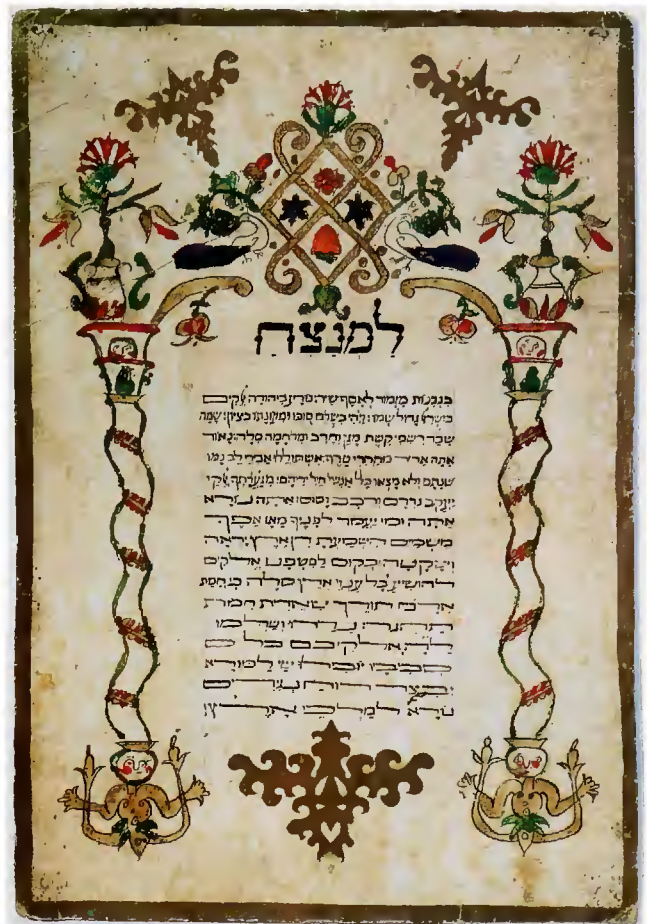 לַמְנַצֵּחַ
בנגינות מזמור לאסף שיר: נודע ביהודה אלקים
בישראל גדול שמו: ויהי בשלם סוכו ומעונתו בציון: שמה
שבר רשפי קשת מגן וחרב ומלחמה סלה: נאור
אתה אדיר מהררי טרף: אשתוללו אבירי לב נמו
שנתם ולא מצאו כל אנשי חיל ידיהם: מגערתך אלקי
יעקב נרדם ורכב וסוס: אתה נורא
אתה ומי יעמד לפניך מאז אפך
משמים השמעת דין ארץ יראה
ושקטה: בקום למשפט אלקים
להושיע כל ענוי ארץ סלה: כי חמת
אדם תודך שארית חמת
תחגר: נדרו ושלמו
לה' אלקיכם כל
סביביו יובילו שי למורא
יבצר רוח נגידים
נורא למלכי ארץ